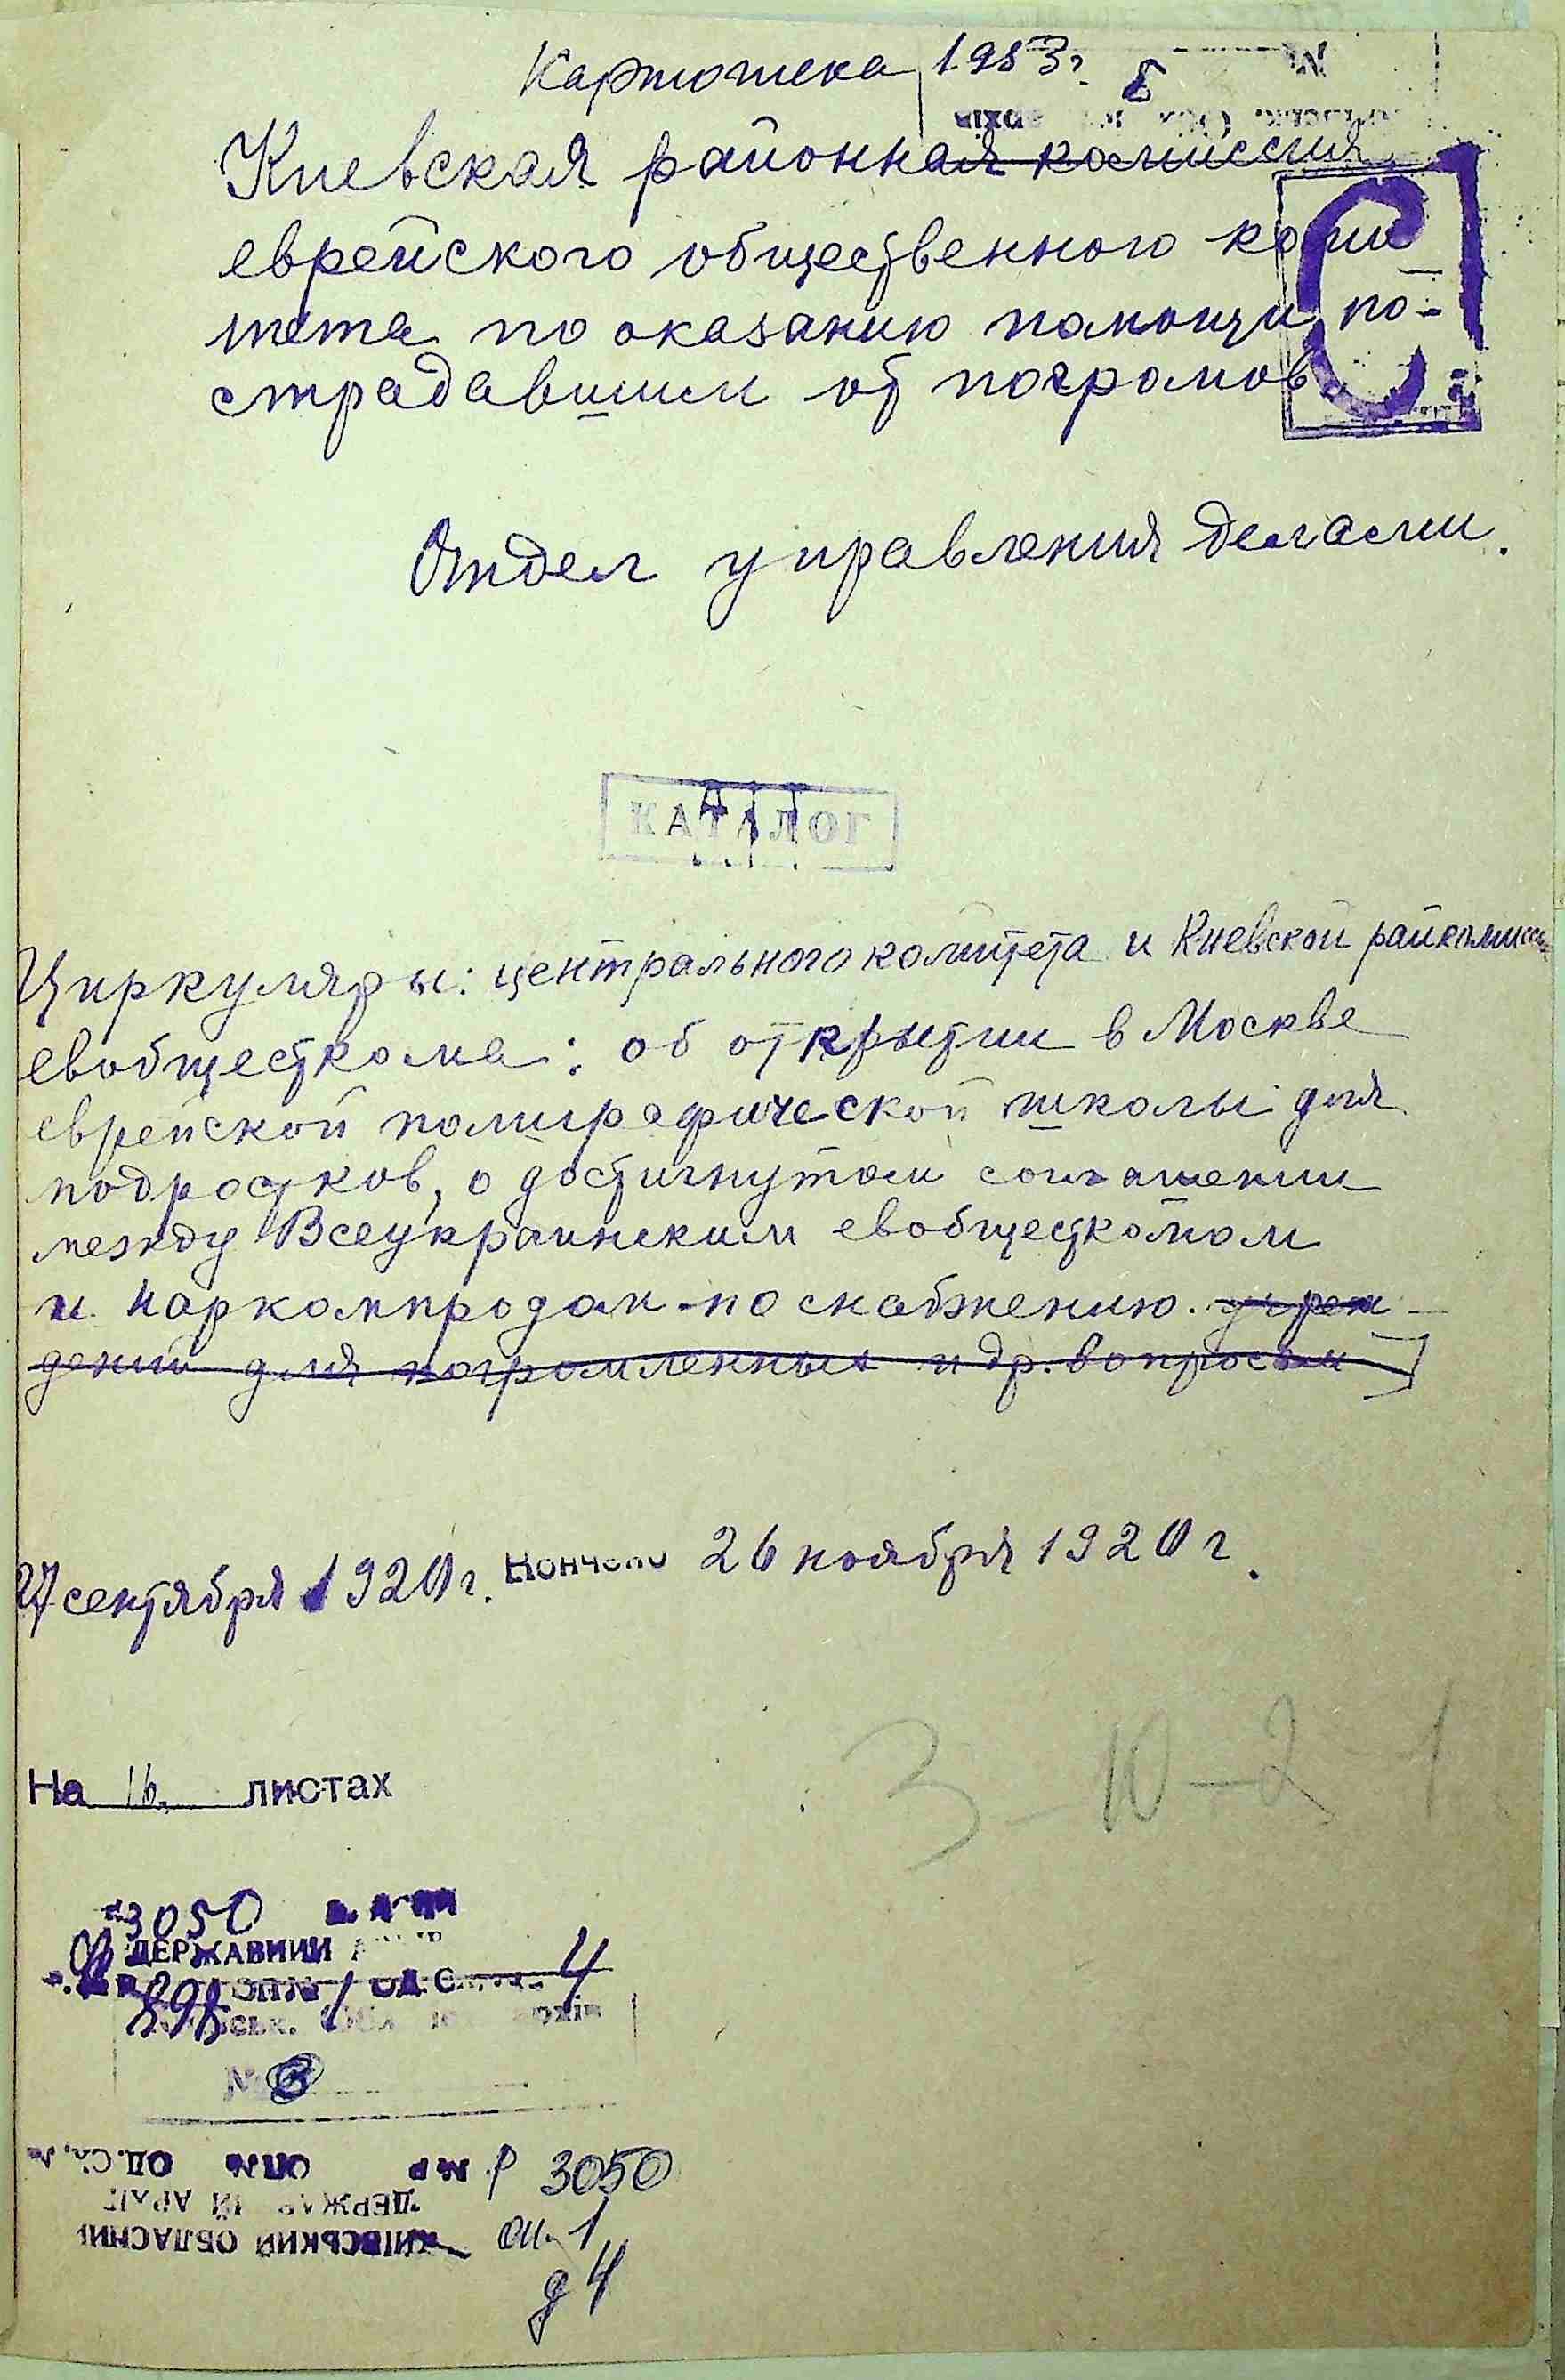 Картотека 1953г.
Киевская районная комиссия
еврейского общественного коми
тета по оказанию помощи по-
страдавшим от погромов
Отдел управления делами.
КАТАЛОГ
Циркуляры: центрального комитета и Киевской райкомиссии
евобщесткома: об открытии в Москве
еврейской полиграфической школы для
подростков, о достигнутом соглашении
между Всеукраинским евобщесткомом
и наркомпродом по снабжению. учреж-
дений для погромленных и др. вопросы
27 сентября 1920г. Кончено 26 ноября 1920 г.
На 16. листах
3-10-2 1
3050
ДЕРЖАВНИЙ
898 ОП№ 1 ОД.С 4
№
№ Р ОП№ ОД.Сб.№ Р 3050
ДЕРЖАВНИЙ АРХІВ
КИЇВСЬКИЙ ОБЛАСНИЙ оп. 1
д 4